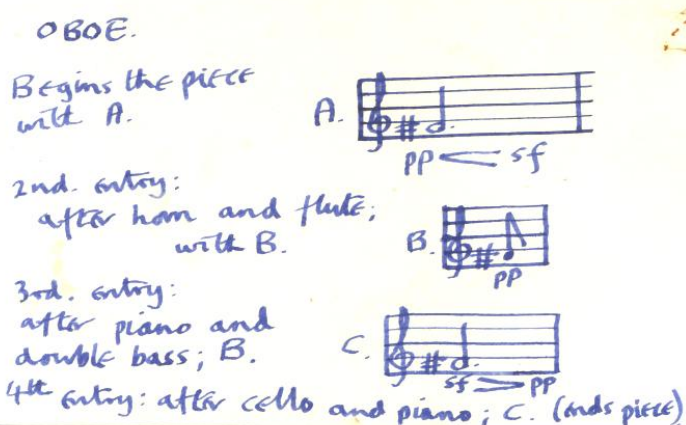 OBOE.
Begins the piece
with A.
A.
pp < sf
2nd. entry:
after horn and flute;
with B.
B.
pp
3rd. entry:
after piano and
double bass; B.
C.
sf > pp
4th entry: after cello and piano; C. (ends piece)